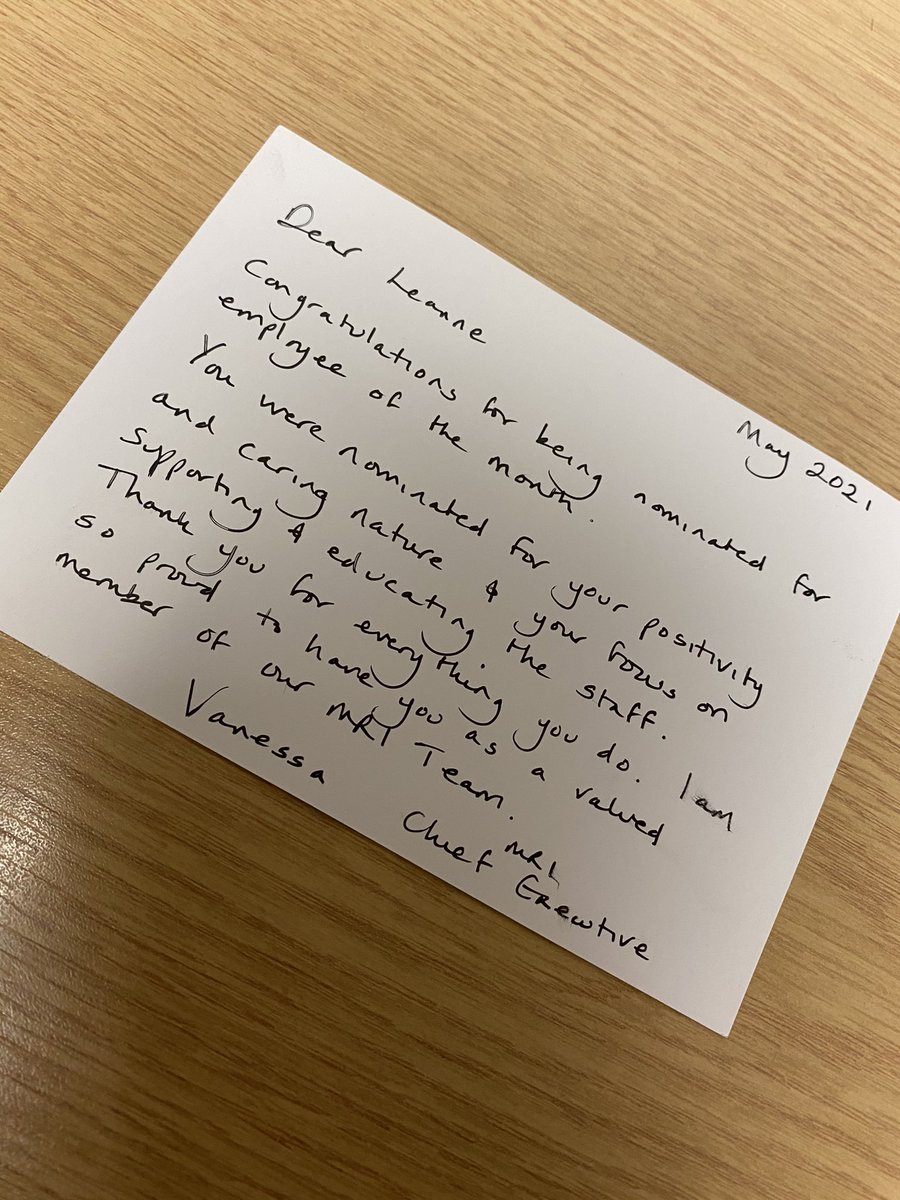 May 2021
Dear Leanne
Congratulations for being nominated for
employee of the month.
You were nominated for your positivity
and caring nature & your focus on
supporting & educating the staff.
Thank you for everything you do. I am
so proud to have you as a valued
member of our MRI Team.
Vanessa
MRI
Chief Executive